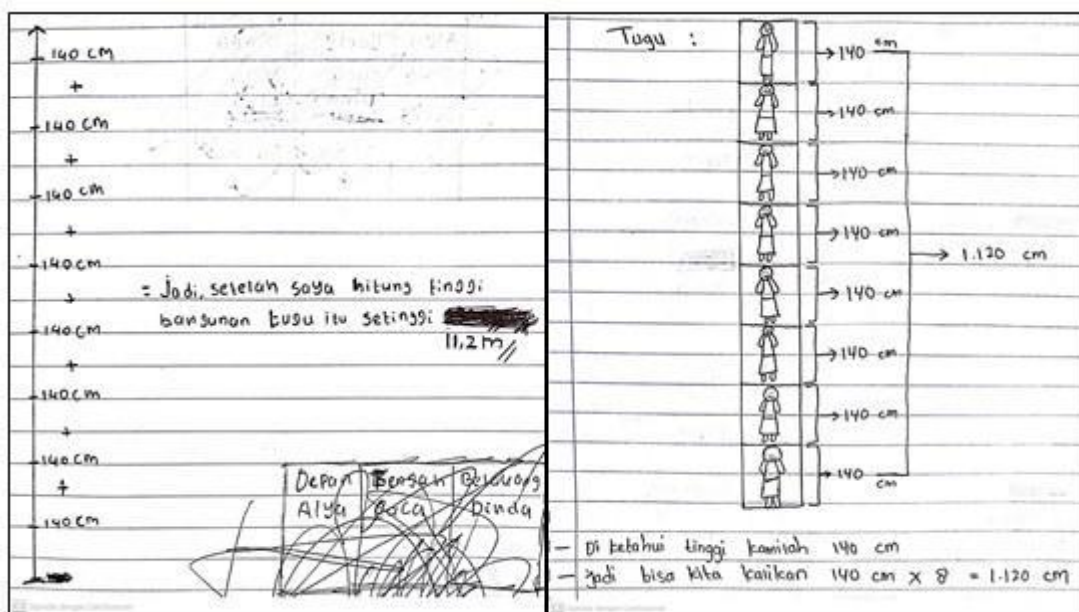 140 cm
+
140 cm
+
140 cm
+
140 cm
+
140 cm
+
140 cm
+
140 cm
+
140 cm
= Jadi, setelah saya hitung tinggi
bangunan tugu itu setinggi
11,2 m
Depan
Alya Dinda
Tugu :
140 cm
140 cm
140 cm
140 cm
140 cm
140 cm
140 cm
140 cm
1.120 cm
- Di ketahui tinggi kamilah 140 cm
- Jadi bisa kita kalikan 140 cm x 8 = 1.120 cm